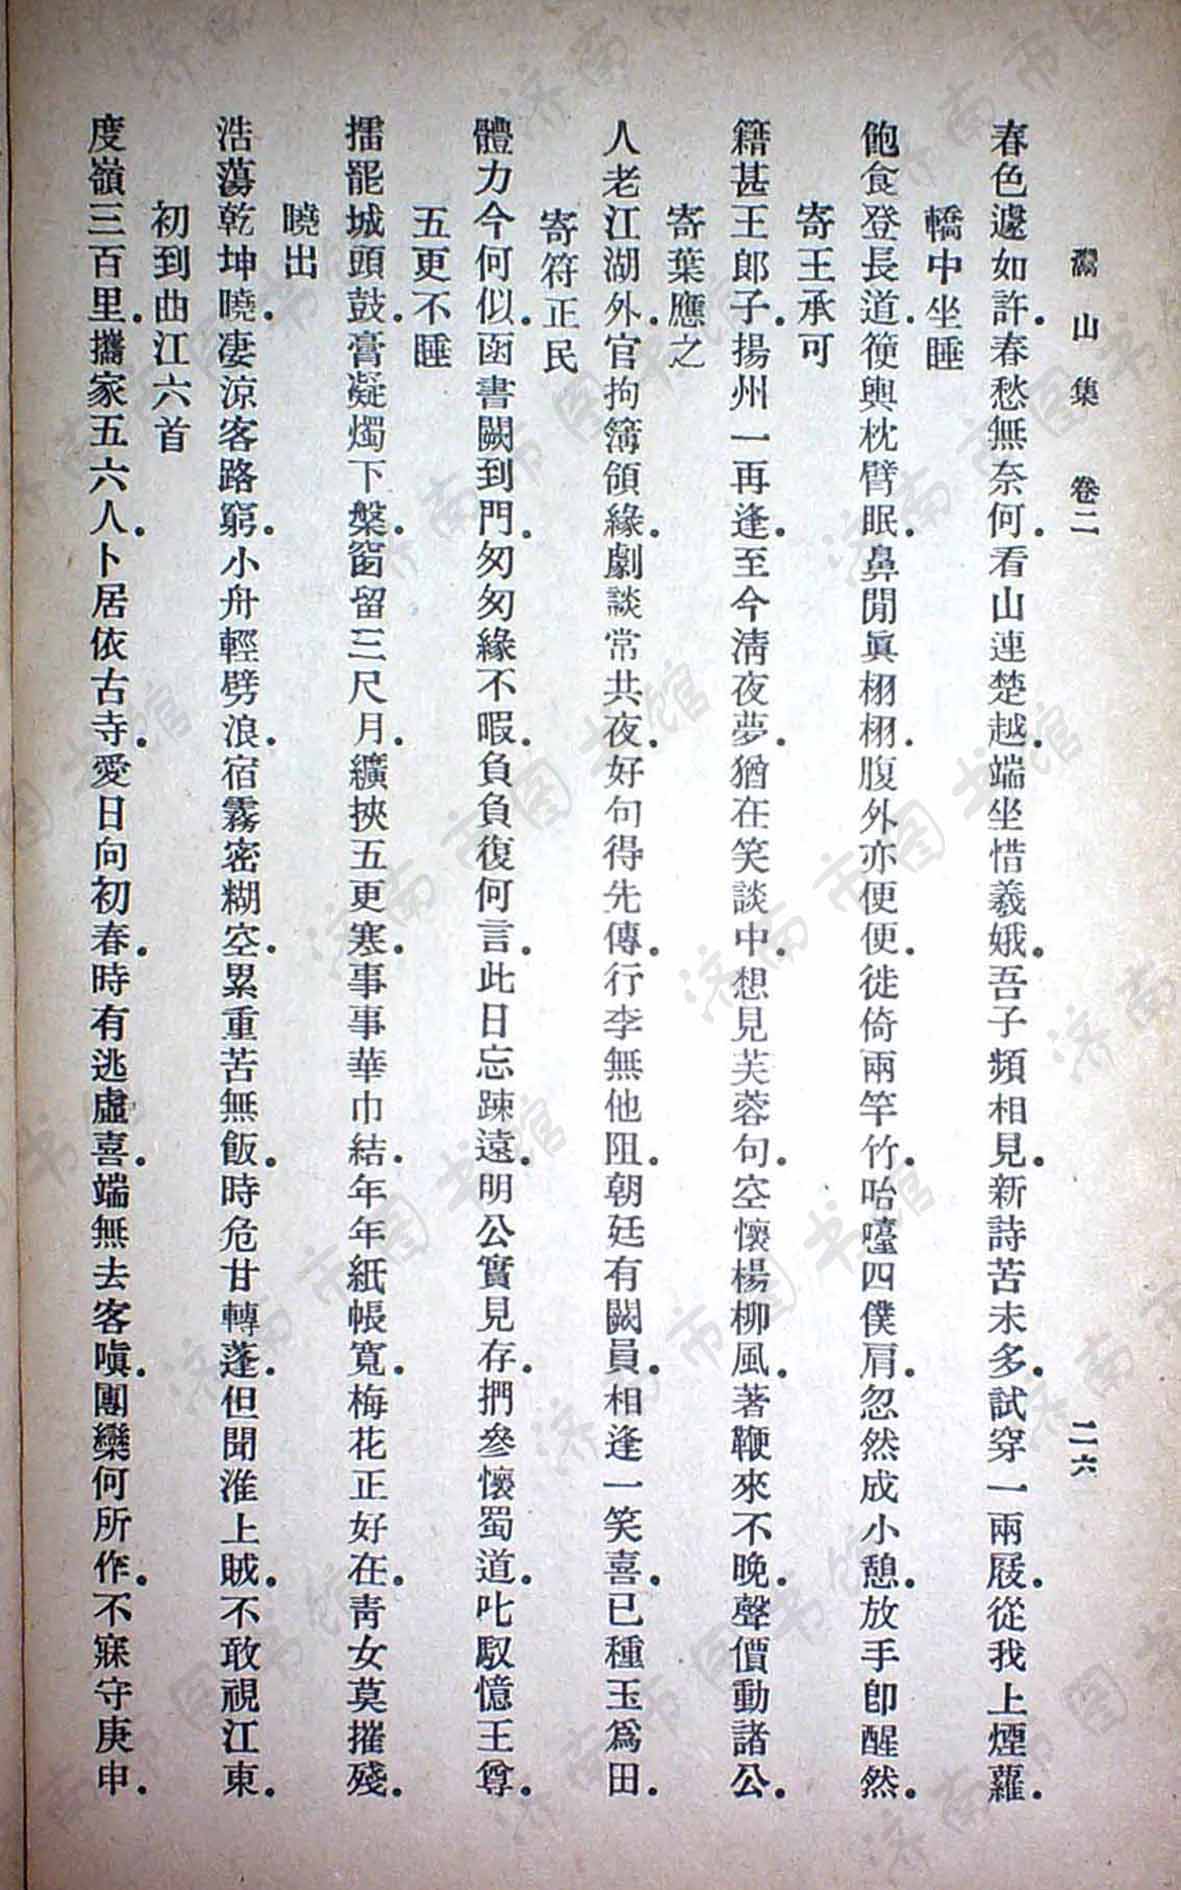 灊山集　卷二　二六
春色遽如許．春愁無奈何．看山連楚越．端坐惜羲娥．吾子頻相見．新詩苦未多．試穿一兩屐．從我上煙蘿．
轎中坐睡
飽食登長道．箯輿枕臂眠．鼻閒眞栩栩．腹外亦便便．徙倚兩竿竹．咍嚔四僕肩．忽然成小憩．放手卽醒然．
寄王承可
籍甚王郎子．揚州一再逢．至今淸夜夢．猶在笑談中．想見芙蓉句．空懷楊柳風．著鞭來不晚．聲價動諸公．
寄葉應之
人老江湖外．官拘簿領緣．劇談常共夜．好句得先傳．行李無他阻．朝廷有闕員．相逢一笑喜．已種玉爲田．
寄符正民
體力今何似．函書闕到門．匆匆緣不暇．負負復何言．此日忘疎遠．明公實見存．捫參懷蜀道．叱馭憶王尊．
五更不睡
擂罷城頭鼓．膏凝燭下槃．窗留三尺月．纊挾五更寒．事事華巾結．年年紙帳寬．梅花正好在．靑女莫摧殘．
曉出
浩蕩乾坤曉．凄涼客路窮．小舟輕劈浪．宿霧密糊空．累重苦無飯．時危甘轉蓬．但聞淮上賊．不敢視江東．
初到曲江六首
度嶺三百里．攜家五六人．卜居依古寺．愛日向初春．時有逃虛喜．端無去客嗔．團欒何所作．不寐守庚申．
济南市图书馆